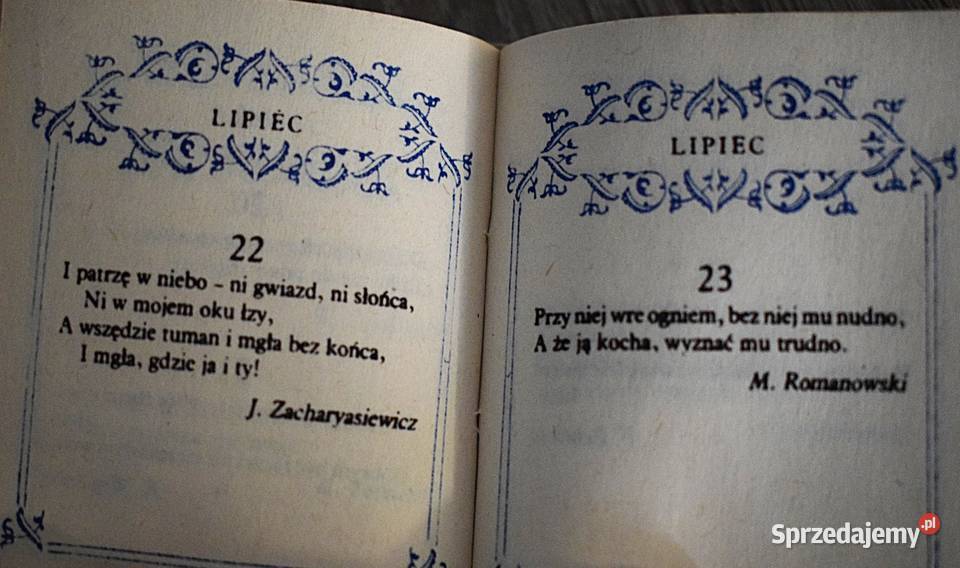 LIPIEC
22
I patrzę w niebo – ni gwiazd, ni słońca,
Ni w mojem oku łzy,
A wszędzie tuman i mgła bez końca,
I mgła, gdzie ja i ty!
J. Zacharyasiewicz
LIPIEC
23
Przy niej wre ogniem, bez niej mu nudno,
A że ją kocha, wyznać mu trudno.
M. Romanowski
Sprzedajemy.pl